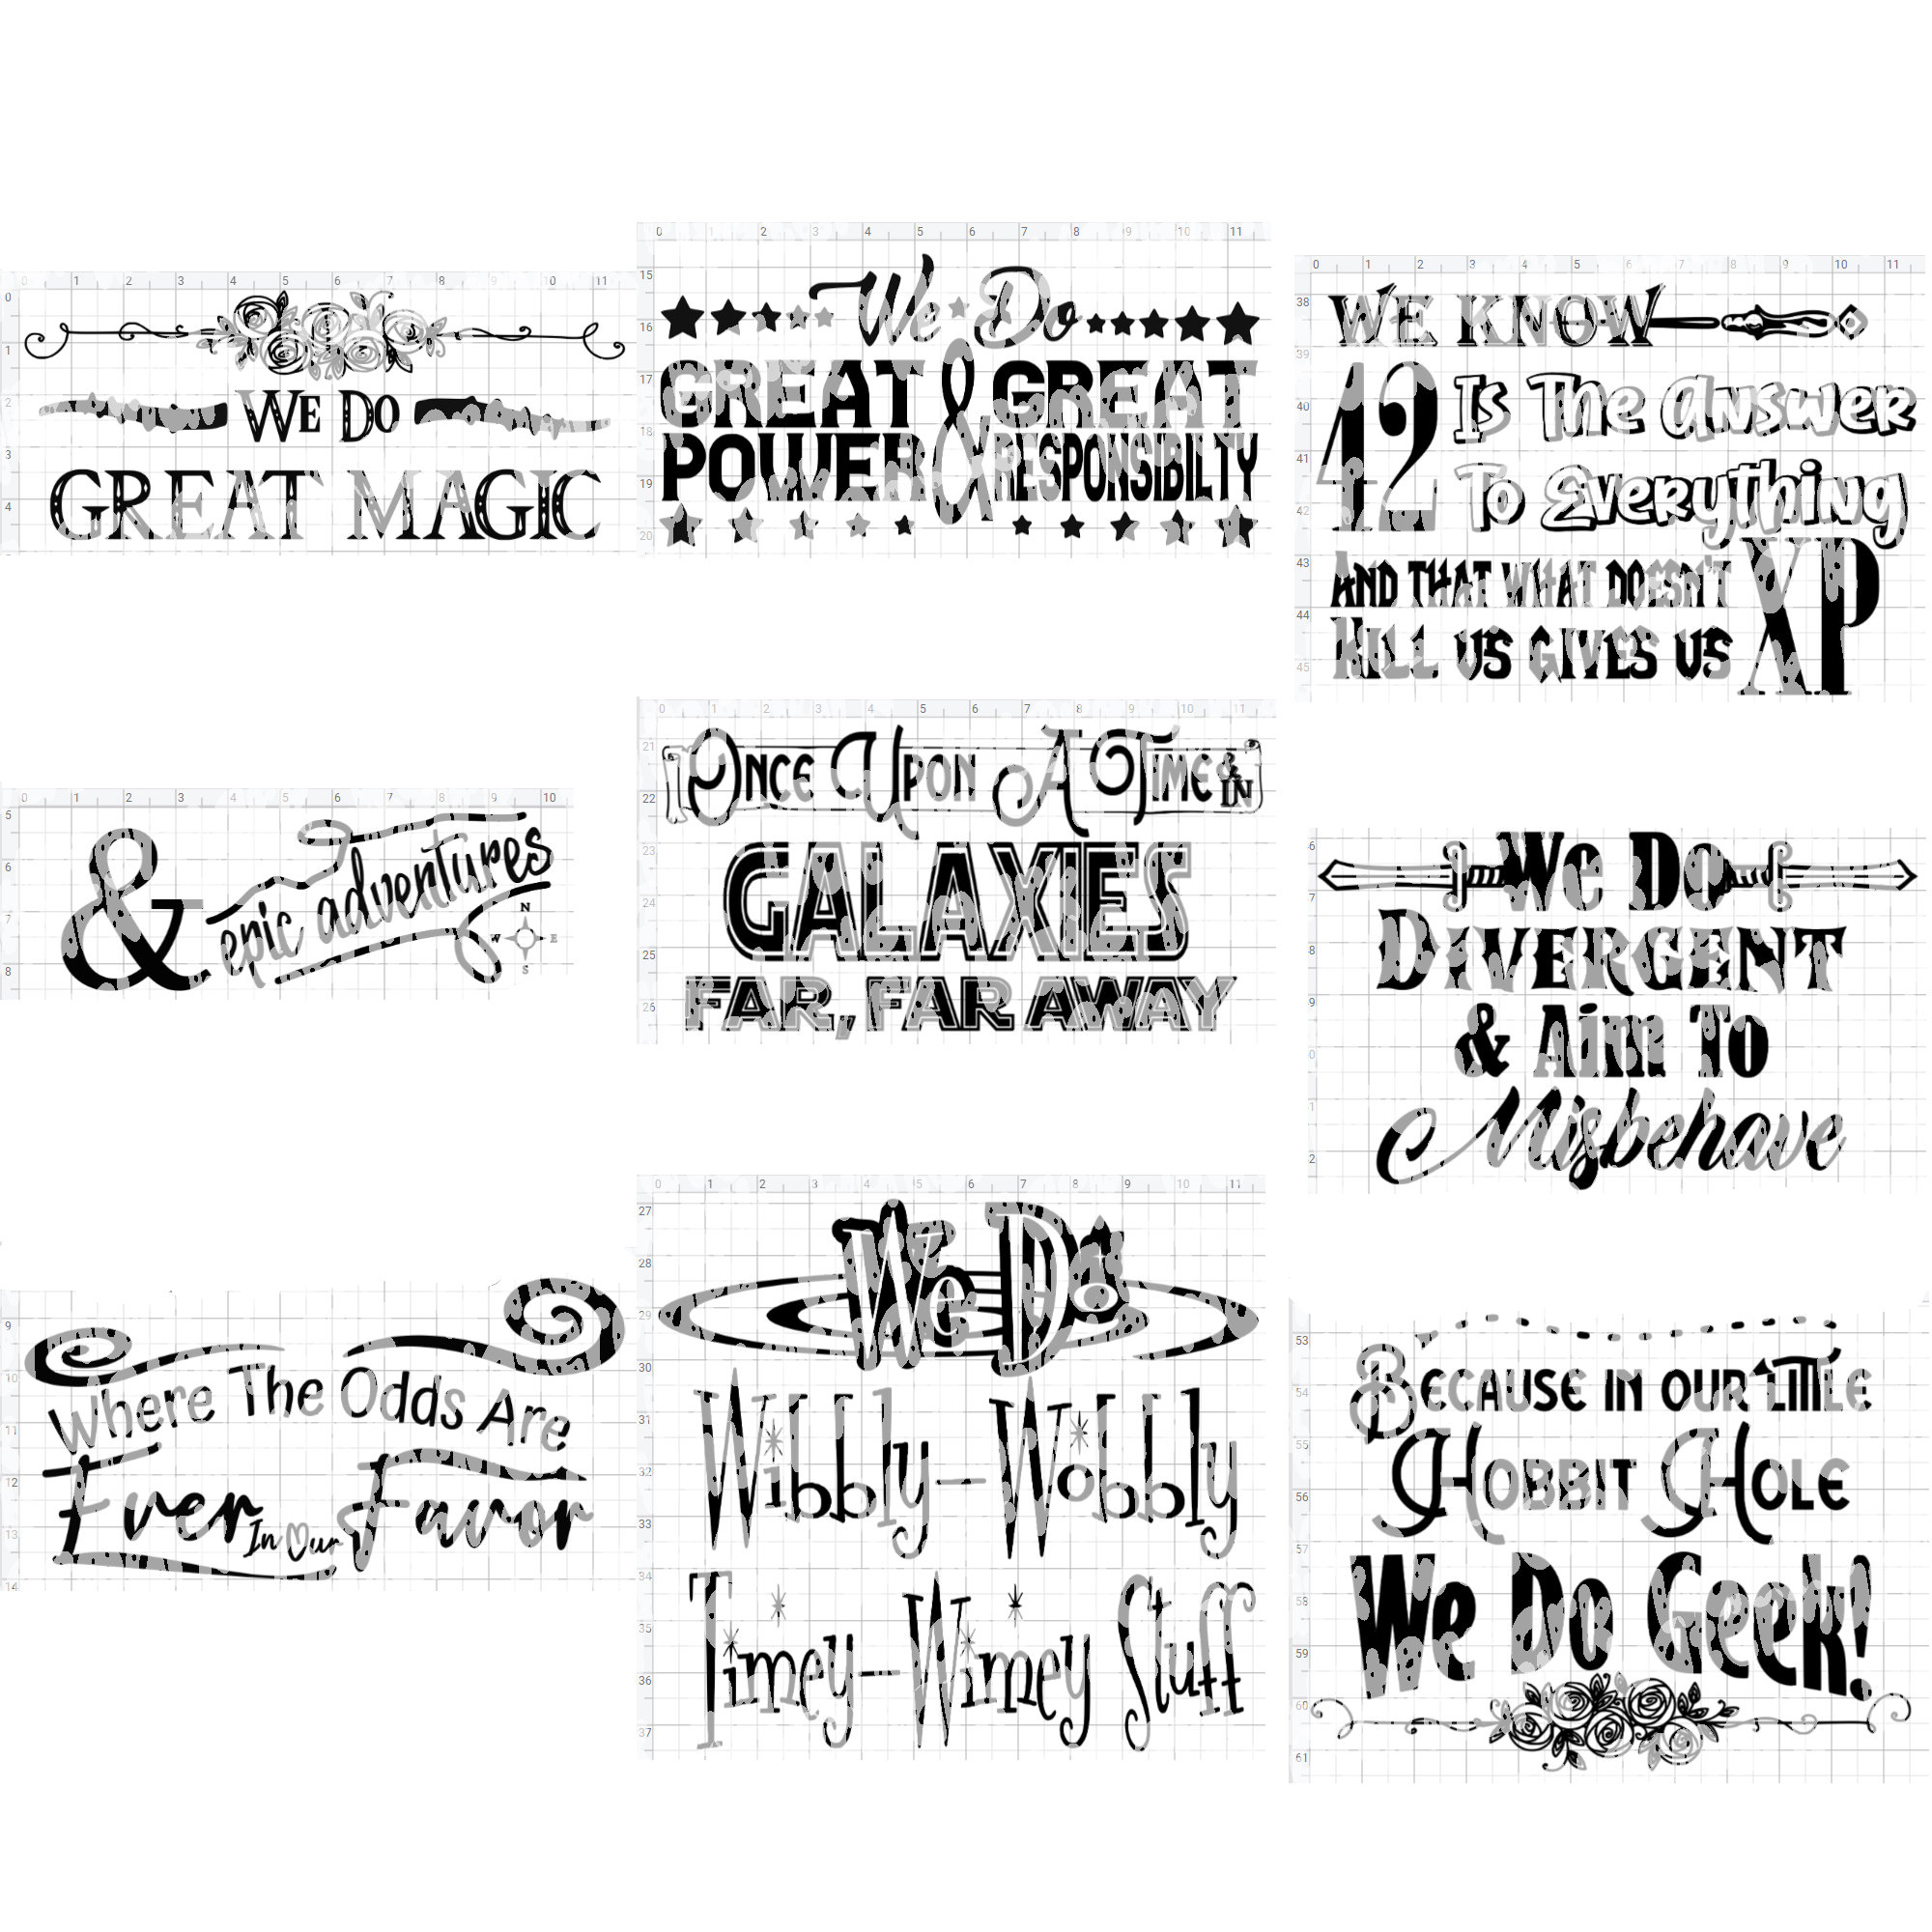 WE DO
GREAT MAGIC
& epic adventures
N
W E
S
Where The Odds Are
Ever In Our Favor
We Do
GREAT & GREAT
POWER RESPONSIBILTY
ONCE UPON A TIME & IN
GALAXIES
FAR, FAR AWAY
We Do
Wibbly-Wobbly
Timey-Wimey Stuff
WE KNOW
42 Is The Answer
To Everything
AND THAT WHAT DOESN'T
KILL US GIVES US XP
We Do
DIVERGENT
& Aim To
Misbehave
BECAUSE IN OUR LITTLE
HOBBIT HOLE
We Do Geek!